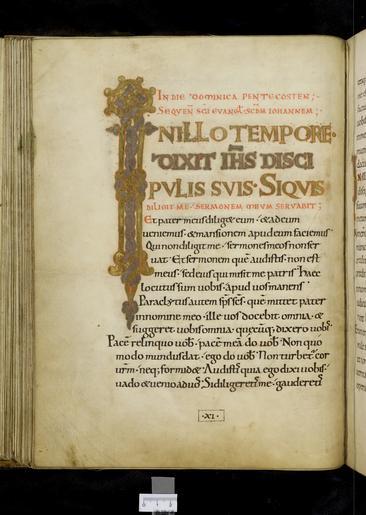 IN DIE DOMINICA PENTECOSTEN;
SEQUEN̄ SC̄I EVANḠL SCD̄M IOHANNEM;
IN ILLO TEMPORE·
DIXIT IH̄S DISCI
PULIS SUIS· SIQUIS
DILIGIT ME· SERMONEM MEUM SERVABIT;
Et pater meus diliget eum· & ad eum
veniemus· & mansionem apud eum faciemus
Qui non diligit me· sermones meos non ser
vat· Et sermonem quē audistis· non est
meus· sed eius qui misit me patris· Haec
locutus sum vobis· apud vos manens·
Paraclytus autem sp̄s sc̄s· quem mittet pater
in nomine meo· ille vos docebit omnia· &
suggeret vobis omnia· quęcūq; dixero vob·
Pacē relinquo vob· pacē meā do vob· Non quo
modo mundus dat· ego do vob· Non turbet cor
vr̄m· neq; formidet· Audistis quia ego dixi vobis·
vado & venio ad vos· Si diligeretis me· gauderetis
·XI·